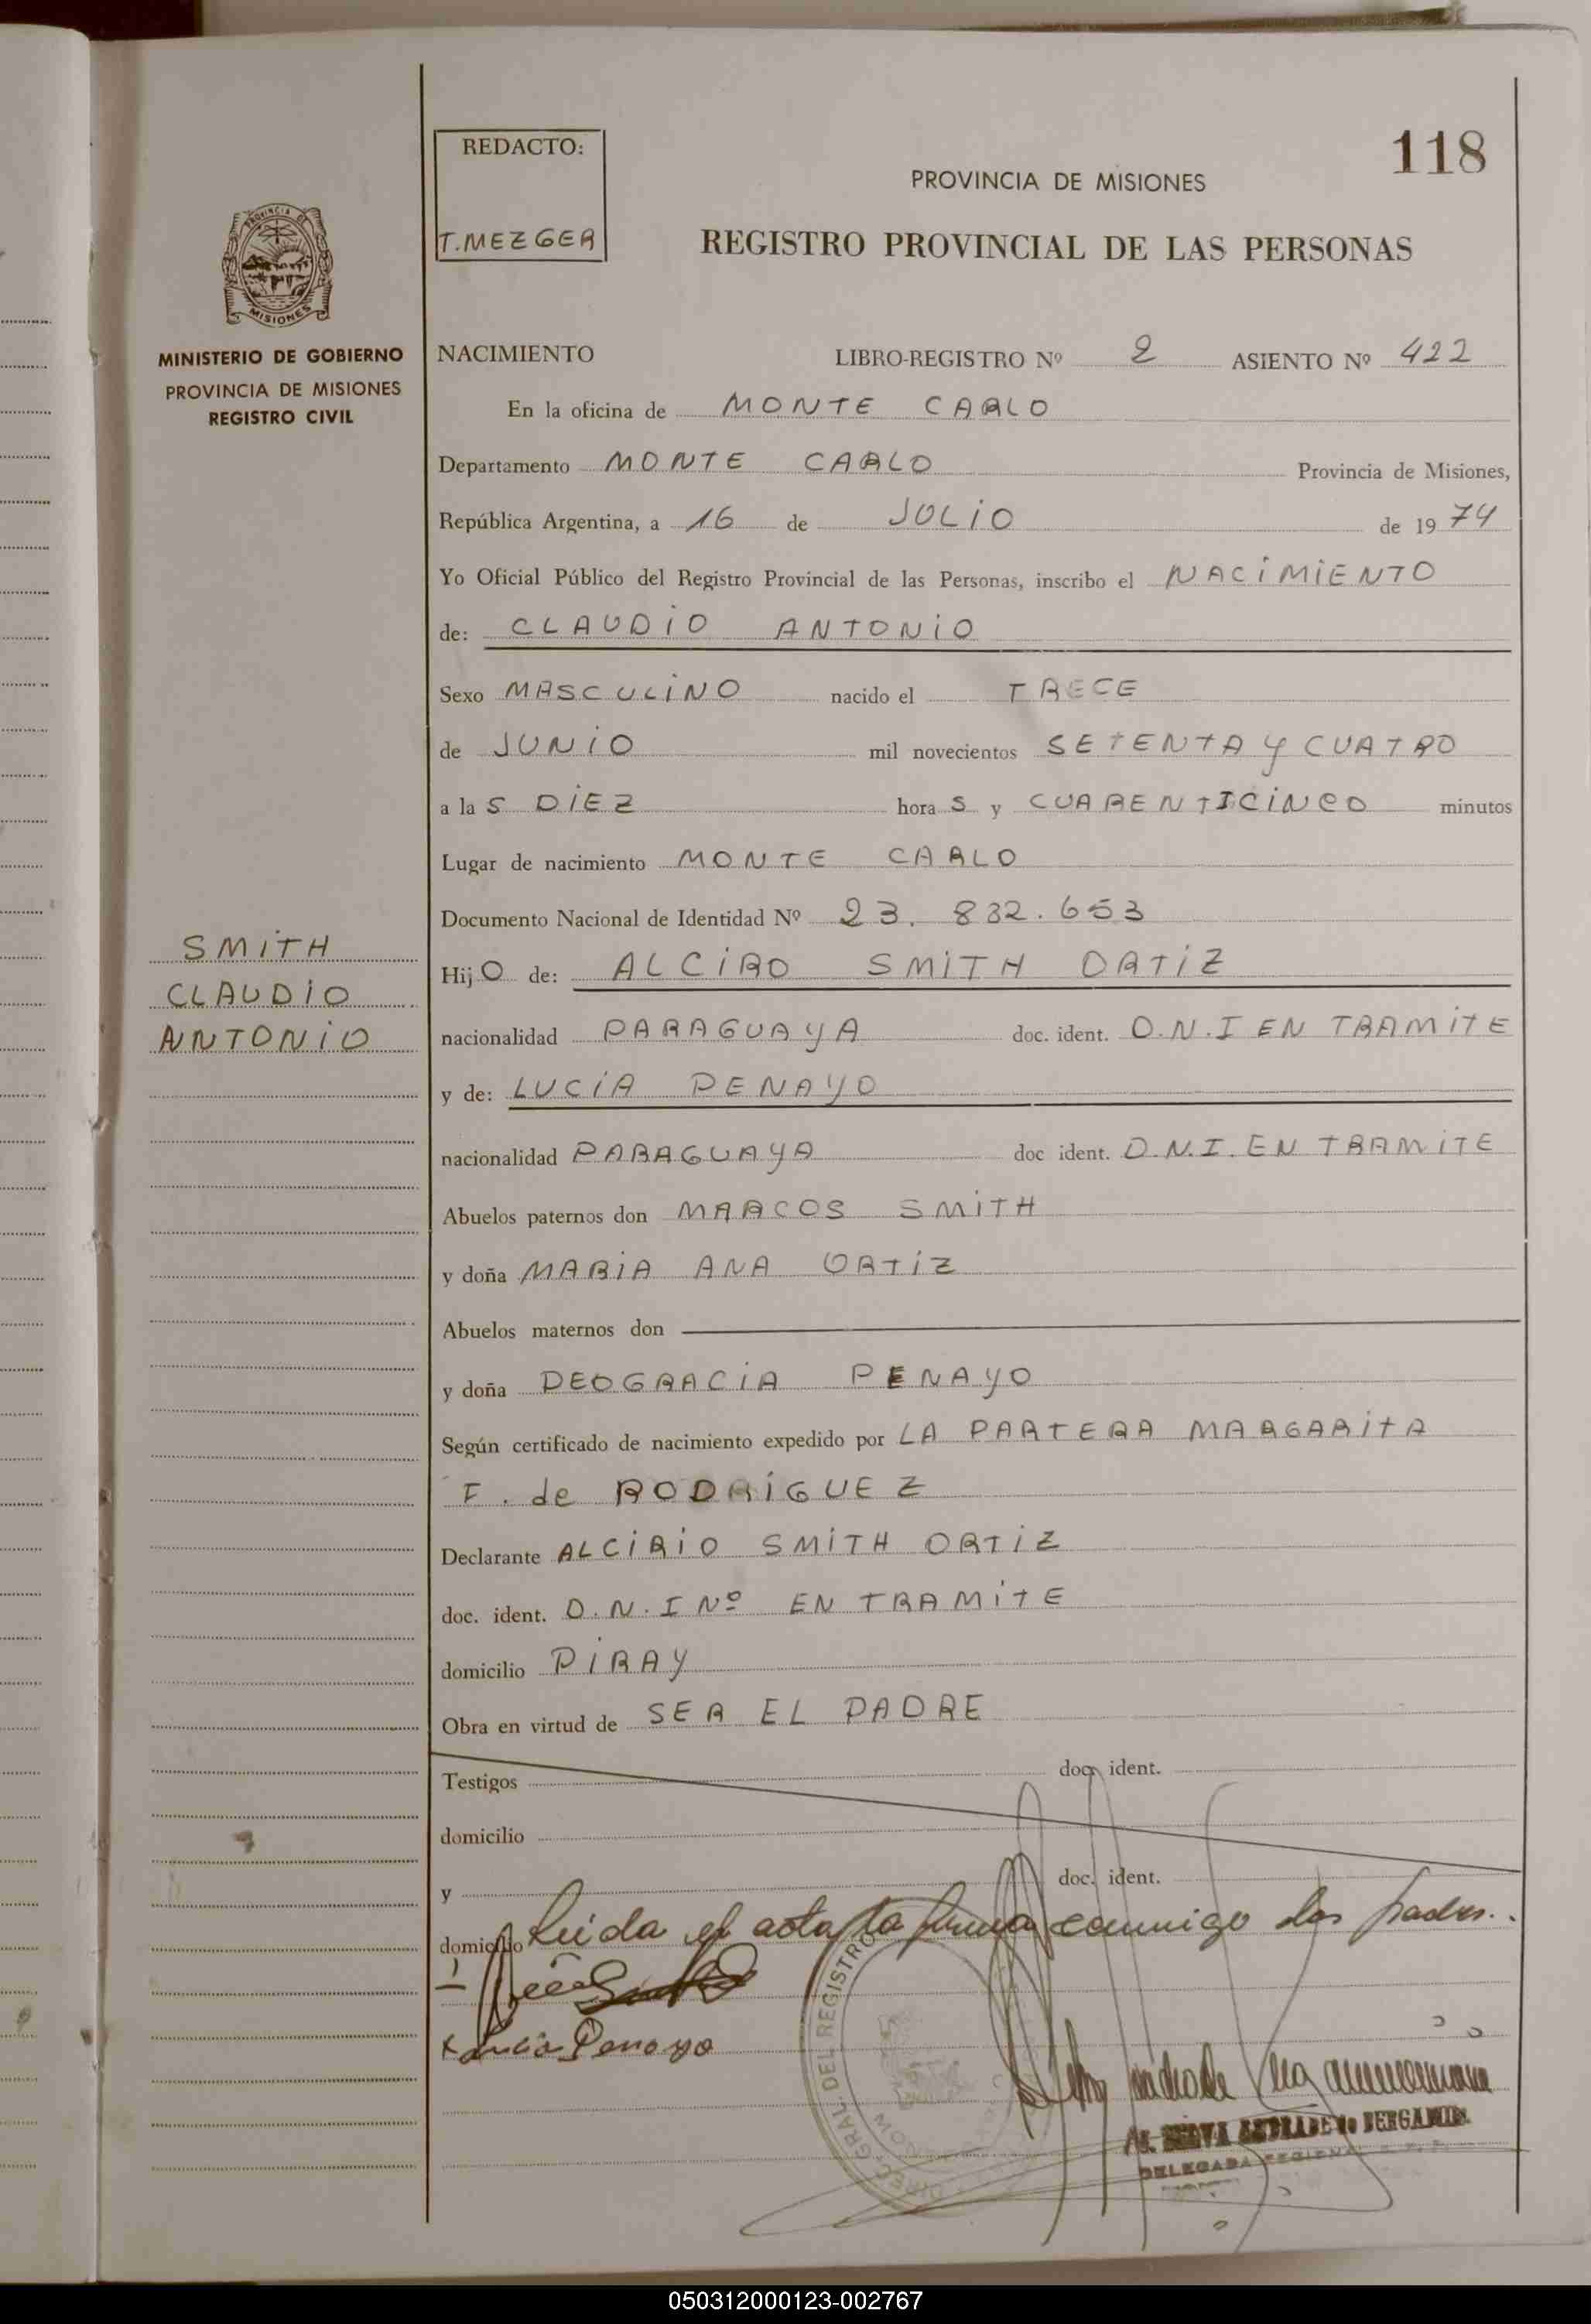 118
REDACTO:
T. MEZGER
PROVINCIA DE MISIONES
REGISTRO PROVINCIAL DE LAS PERSONAS
PROVINCIA DE
MISIONES
MINISTERIO DE GOBIERNO
PROVINCIA DE MISIONES
REGISTRO CIVIL
NACIMIENTO LIBRO-REGISTRO Nº 2 ASIENTO Nº 422
En la oficina de MONTE CARLO
Departamento MONTE CARLO Provincia de Misiones,
República Argentina, a 16 de JULIO de 1974
Yo Oficial Público del Registro Provincial de las Personas, inscribo el NACIMIENTO
de: CLAUDIO ANTONIO
Sexo MASCULINO nacido el TRECE
de JUNIO mil novecientos SETENTA Y CUATRO
a las DIEZ horas y CUARENTICINCO minutos
Lugar de nacimiento MONTE CARLO
Documento Nacional de Identidad Nº 23.832.653
SMITH
CLAUDIO
ANTONIO
Hijo de: ALCIRO SMITH ORTIZ
nacionalidad PARAGUAYA doc. ident. D.N.I EN TRAMITE
y de: LUCIA PENAYO
nacionalidad PARAGUAYA doc ident. D.N.I. EN TRAMITE
Abuelos paternos don MARCOS SMITH
y doña MARIA ANA ORTIZ
Abuelos maternos don
y doña DEOGRACIA PENAYO
Según certificado de nacimiento expedido por LA PARTERA MARGARITA
F. de RODRIGUEZ
Declarante ALCIRIO SMITH ORTIZ
doc. ident. D.N.I Nº EN TRAMITE
domicilio PIRAY
Obra en virtud de SER EL PADRE
Testigos doc. ident.
domicilio
y doc. ident.
domicilio Leida el acta la firma conmigo los padres.
Lucia Penayo
DIREC. GRAL. DEL REGISTRO
DELEGADA REGIONAL
050312000123-002767